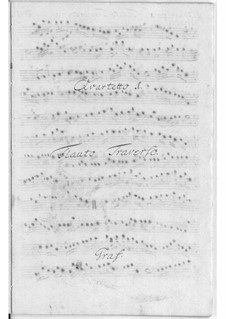 Quartetto 1.
Flauto Traverso.
Graf.